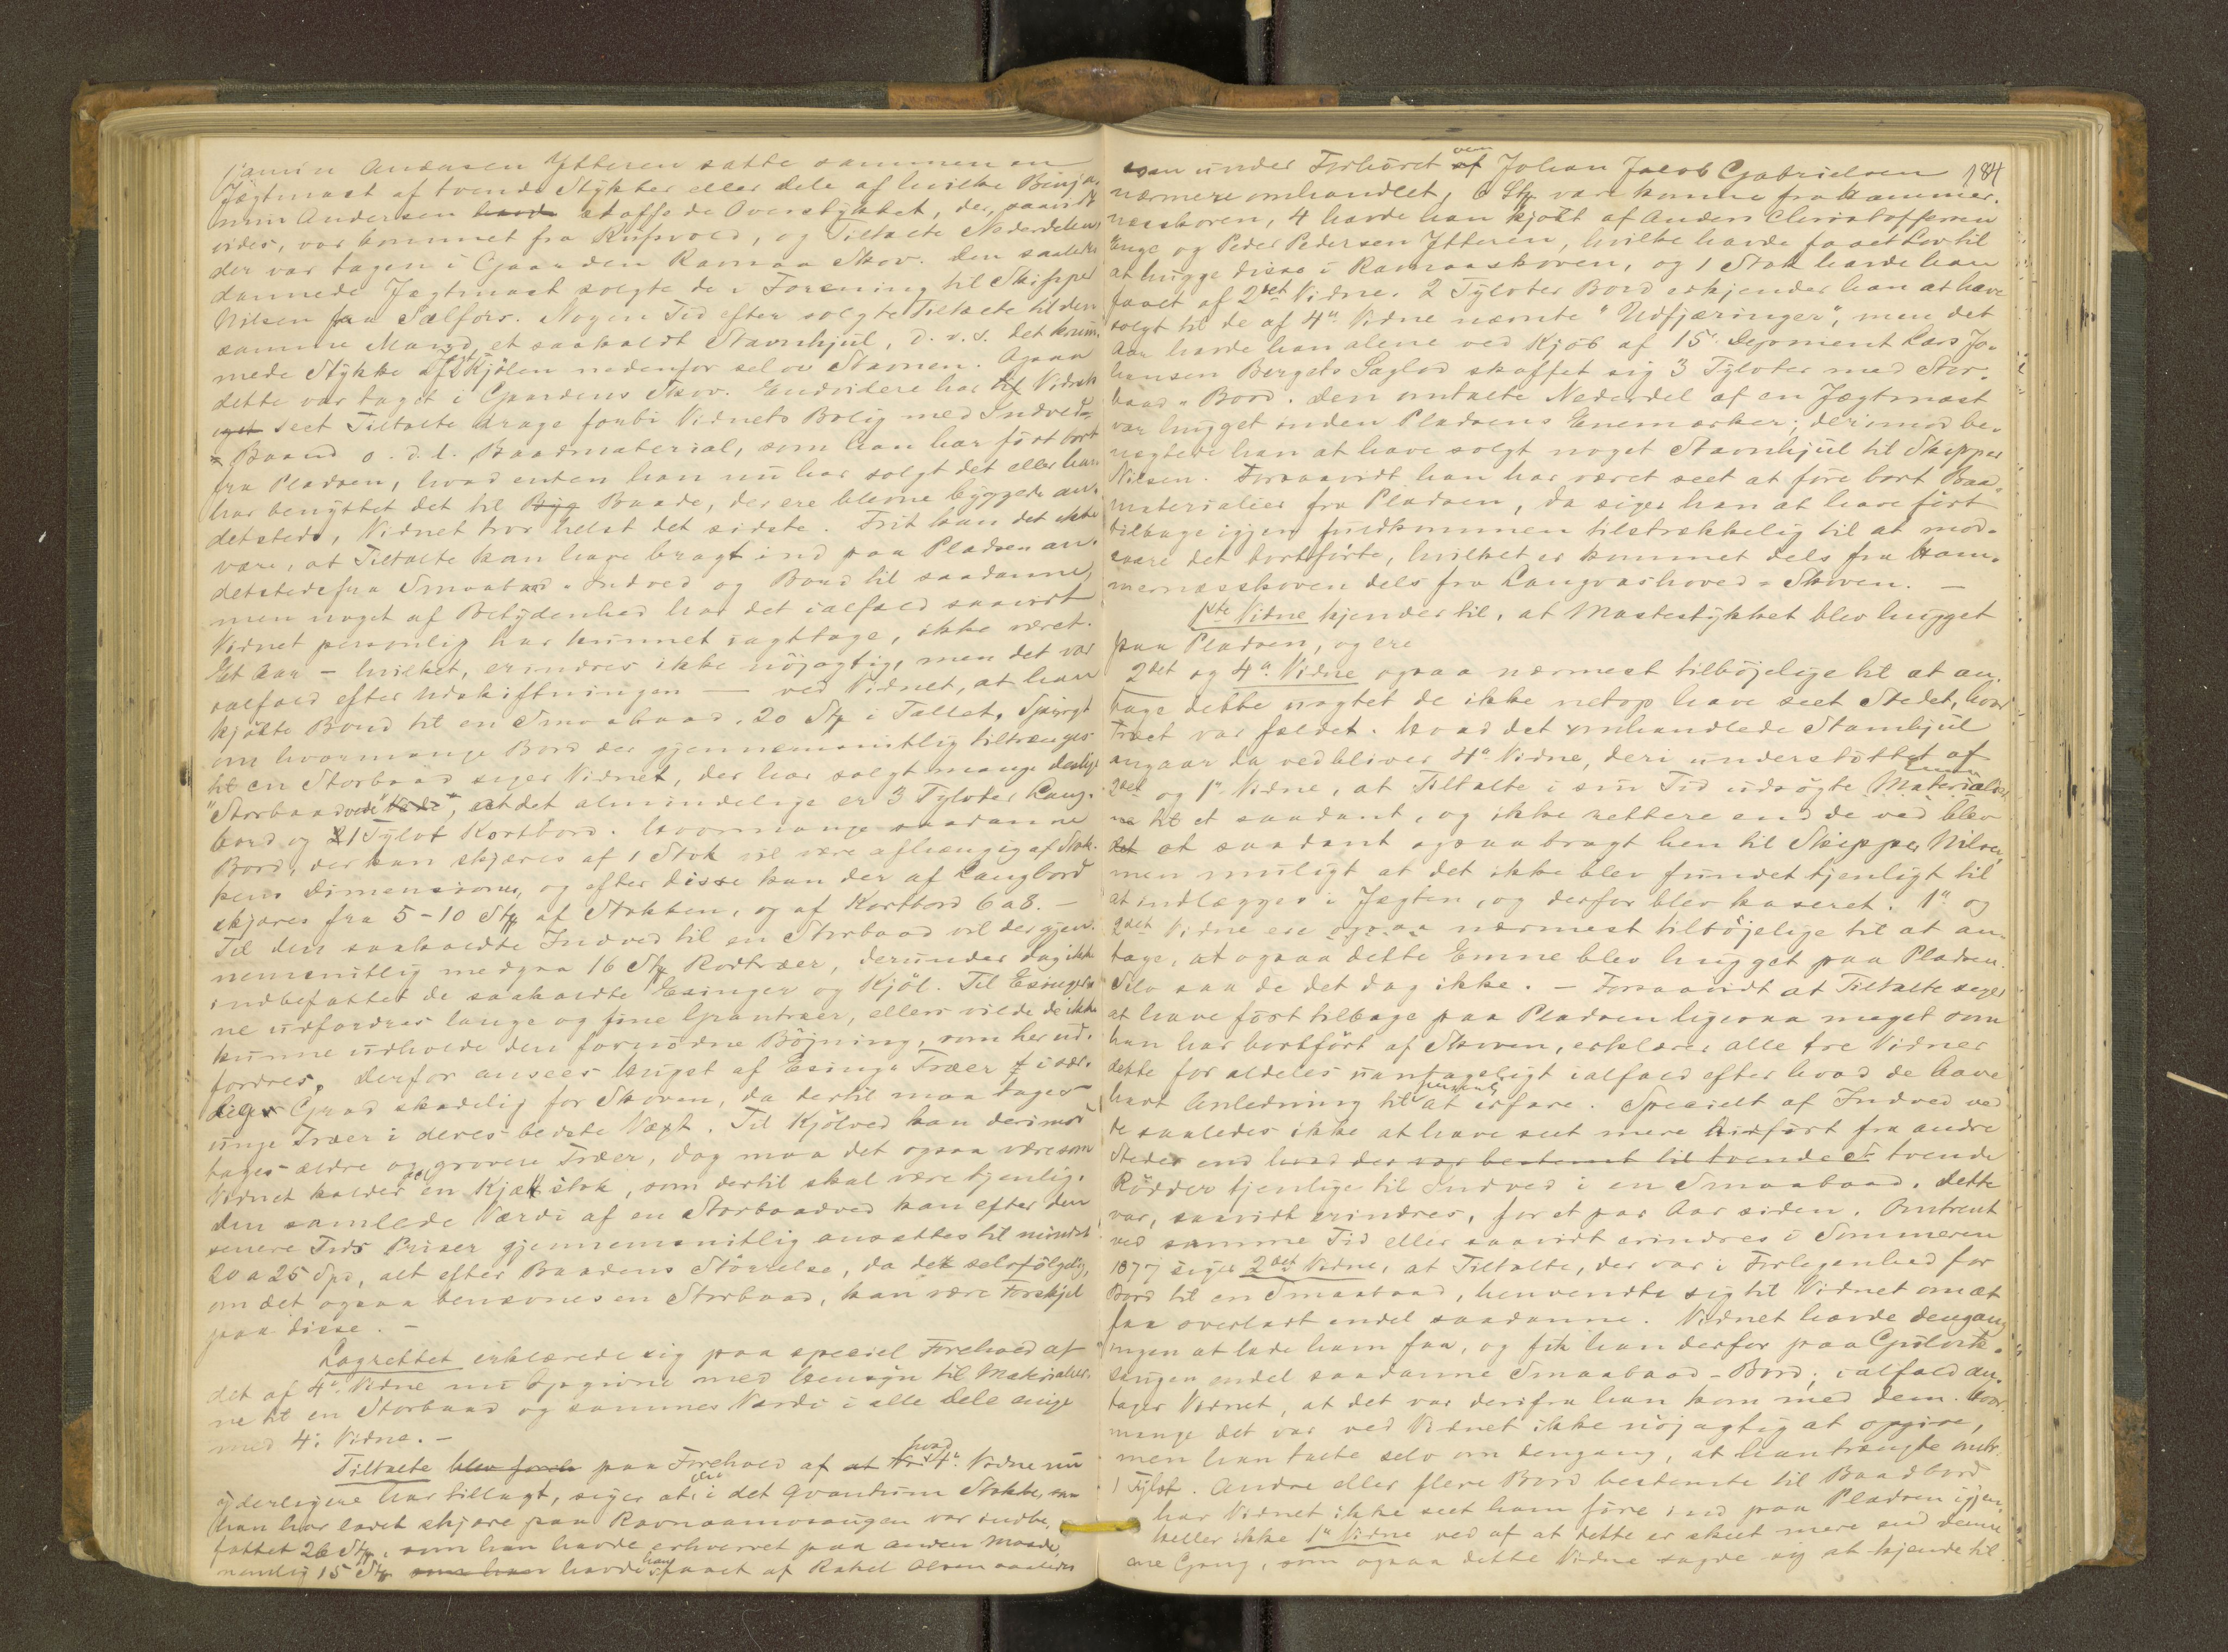 jamin Andersen Ytteren satte sammen en
Jægtmast af tvende Stykker eller dele af hvilke Binja-
min Andersen havde skaffede Overstykket, der, saavidt
vides, var kommet fra Rusvold, og Tiltalte Nederdelen,
der var tagen i Gaarden Ramaa Skov. Den saaledes
dannede Jægtmast solgte de i Forening til Skipper
Nilsen paa Selfors. Nogen Tid efter solgte Tiltalte til den
samme Mand et saakaldt Stavnhjul, d. v. s. det krum-
mede Stykke af Kjölen nedenfor selve Stavnen. Ogsaa
dette var taget i Gaardens Skov. Endvidere har Vidnet
seet Tiltalte drage forbi Vidnets Bolig med Indved-
Baand o. d. l. Baadmaterial, som han har fört bort
fra Pladsen, hvad enten han nu har solgt det eller han
har benyttet det til Byg Baade, der ere blevne byggede an-
detsteds, Vidnet tror helst det sidste. Frit kan det ikke
være, at Tiltalte kan have bragt ind paa Pladsen an-
detstedsfra Smaabaad-Indved og Bord til saadanne,
men noget af Betydenhed har det ialfald saavidt
Vidnet personlig har kunnet iagttage, ikke været.
Et Aar - hvilket, erindres ikke nöjagtig, men det var
ialfald efter Udskiftningen - ved Vidnet, at han
kjöbte Bord til en Smaabaad, 20 Stk i Tallet. Spurgt
om hvormange Bord der gjennemsnitlig tiltrænges
til en Storbaad siger Vidnet, der har solgt mange deslige
"Storbaadved", at det almindelige er 3 Tylvter Lang-
bord og 1 Tylvt Kortbord. Hvormange saadanne
Bord, der kan skjæres af 1 Stok vil være afhængig af Stok-
kens Dimensioner, og efter disse kan der af Langbord
skjæres fra 5-10 Stk af Stokken, og af Kortbord 6 a 8. -
Til den saakaldte Indved til en Storbaad vil der gjen-
nemsnitlig medgaa 16 Stk Rodtræer, derunder dog ikke
indbefattet de saakaldte Esinger og Kjöl. Til Esinger-
ne udfordres lange og fine Grantræer, ellers vilde de ikke
kunne udholde den fornödne Böjning, som her ud-
fordres. Derfor ansees Hugst af Esinge Træer i sær-
deles Grad skadelig for Skoven, da dertil maa tages
unge Træer i deres bedste Væxt. Til Kjölved kan derimod
tages ældre og grovere Træer, dog maa det ogsaa være som
Vidnet kalder en Kjælstok, som dertil skal være tjenlig.
Den samlede Værdi af en Storbaadved kan efter den
senere Tids Priser gjennemsnitlig ansættes til mindst
20 a 25 Spd, alt efter Baadens Störrelse, da det selvfölgelig,
om det ogsaa benævnes en Storbaad, kan være Forskjel
paa disse. -
Lagrettet erklærede sig paa speciel Forehold af
det af 4de Vidne nu Opgivne med Hensyn til Materialier-
ne til en Storbaad og sammes Værdi i alle Dele enige
med 4de Vidne. -
Tiltalte blev foreh paa Forehold af hvad 4de Vidne nu
yderligere har tillagt, siger at i det Qvantum Stokke, som
han har ladet skjære paa Ravnaamosaugen var indbe-
fattet 26 Stk, som han havde erhvervet paa anden Maade,
nemlig 15 Stk som han havde han faaet af Rakel Olsen saaledes
184
som under Forhöret over Johan Jacob Gabrielsen
nærmere omhandlet, 6 Stk vare komne fra Hammer-
næsskoven, 4 havde han kjöbt af Anders Christoffersen
Enge og Peder Pedersen Ytteren, hvilke havde faaet Lov til
at hugge disse i Ravnaaskoven, og 1 Stok havde han
faaet af 2det Vidne. 2 Tylvter Bord erkjender han at have
solgt til de af 4de Vidne nævnte "Udfjæringer", men det
Aar havde han alene ved Kjöb af 15de Deponent Lars Jo-
hansen Bergets Saglod skaffet sig 3 Tylvter med Stor-
baad-Bord. Den omtalte Nederdel af en Jægtmast
var hugget inden Pladsens Enemærker; derimod be-
nægtede han at have solgt noget Stavnhjul til Skipper
Nilsen. Forsaavidt han har været seet at före bort Baad-
materialier fra Pladsen, da siger han at have fört
tilbage igjen fuldkommen tilstrækkelig til at mod-
svare det bortförte, hvilket er kommet dels fra Ham-
mernæsskoven dels fra Langvashoved-Skoven. -
1ste Vidne kjender til, at Mastestykket blev hugget
paa Pladsen, og ere
2det og 4de Vidne ogsaa nærmest tilböjelige til at an-
tage dette uagtet de ikke netop have seet Stedet, hvor
Træet var fældet. Hvad det omhandlede Stamhjul
angaar da vedbliver 4de Vidne, deri understöttet af
2det og 1ste Vidne, at Tiltalte i sin Tid udsögte
til et saadant, og ikke rettere end de ved blev
et saadant ogsaa bragt hen til Skipper Nilsen,
men muligt at det ikke blev fundet tjenligt til
at indlægges i Jægten, og derfor blev kaseret. 1ste og
2det Vidne ere ogsaa nærmest tilböjelige til at an-
tage, at ogsaa dette Emne blev hugget paa Pladsen.
Selv saa de det dog ikke. - Forsaavidt at Tiltalte siger
at have fört tilbage paa Pladsen ligesaa meget som
han har bortfört af Skoven, erklærer alle tre Vidner
dette for aldeles uantageligt ialfald efter hvad de have
havt Anledning til at erfare. Specielt af Indved ved
de saaledes ikke at have seet mere hidfört fra andre
Steder end hvad der var bestemt til tvende et tvende
Rödder tjenlige til Indved i en Smaabaad. Dette
var, saavidt erindres, for et par Aar siden. Omtrent
ved samme Tid eller saavidt erindres i Sommeren
1877 siger 2det Vidne, at Tiltalte, der var i Forlegenhed for
Bord til en Smaabaad, henvendte sig til Vidnet om at
faa overladt endel saadanne. Vidnet havde dengang
ingen at lade ham faa, og fik han derfor paa Gulvik-
saugen endel saadanne Smaabaad-Bord; ialfald an-
tager Vidnet, at det var derifra han kom med dem. Hvor-
mange det var ved Vidnet ikke nöjagtig at opgive,
men han talte selv om dengang, at han trængte omtr.
1 Tylvt. Andre eller flere Bord bestemte til Baadbord
har Vidnet ikke seet ham före ind paa Pladsen igjen,
heller ikke 1ste Vidne ved af at dette er skeet mere end denne
ene Gang, som ogsaa dette Vidne sagde sig at kjende til.